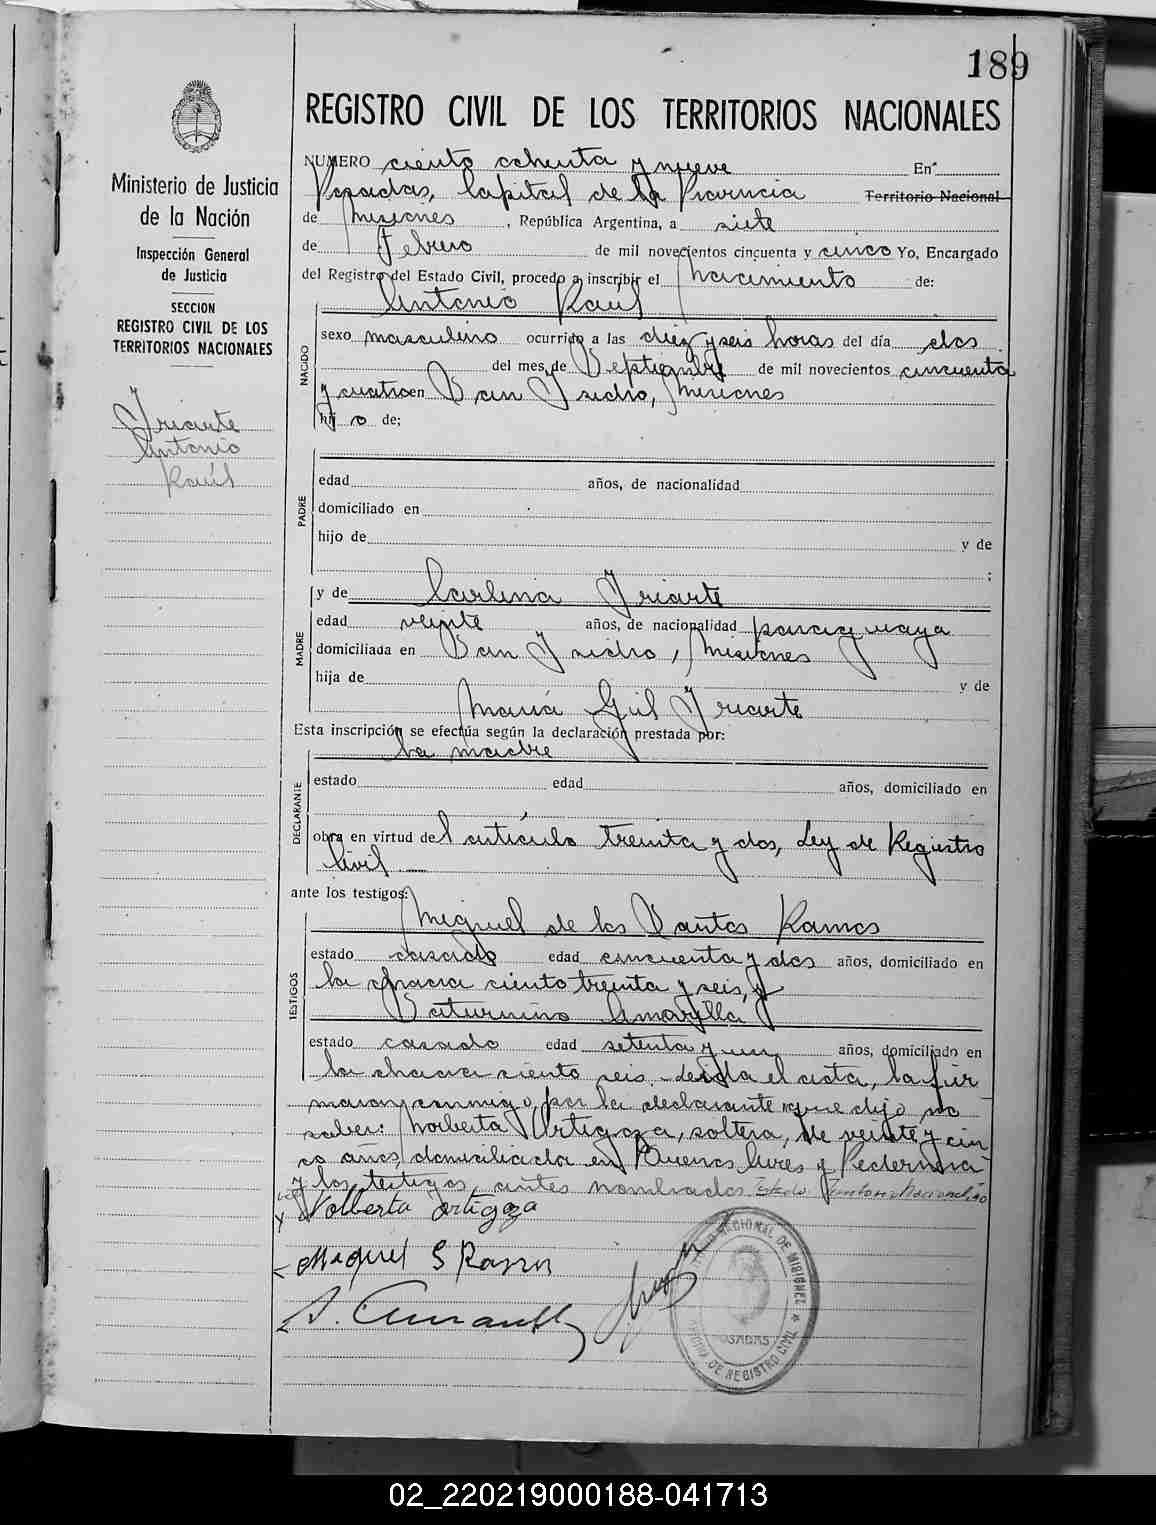 189
REGISTRO CIVIL DE LOS TERRITORIOS NACIONALES
Ministerio de Justicia
de la Nación
Inspección General
de Justicia
SECCION
REGISTRO CIVIL DE LOS
TERRITORIOS NACIONALES
Iriarte
Antonio
Raúl
NUMERO ciento ochenta y nueve En
Posadas, Capital de la Provincia Territorio Nacional
de Misiones, República Argentina, a siete
de Febrero de mil novecientos cincuenta y cinco Yo, Encargado
del Registro del Estado Civil, procedo a inscribir el Nacimiento de:
Antonio Raúl
NACIDO
sexo masculino ocurrido a las diez y seis horas del día dos
del mes de Septiembre de mil novecientos cincuenta
y cuatro en San Isidro, Misiones
hijo de:
PADRE
edad años, de nacionalidad
domiciliado en
hijo de y de
;
y de Carlina Iriarte
MADRE
edad veinte años, de nacionalidad paraguaya
domiciliada en San Isidro, Misiones
hija de y de
María Gil Iriarte
Esta inscripción se efectúa según la declaración prestada por:
la madre
DECLARANTE
estado edad años, domiciliado en
obra en virtud del artículo treinta y dos, Ley de Registro
Civil
ante los testigos:
Miguel de los Santos Ramos
TESTIGOS
estado casado edad cincuenta y dos años, domiciliado en
la chacra ciento treinta y seis, y
Saturnino Amarilla
estado casado edad setenta y un años, domiciliado en
la chacra ciento seis. Leída el acta, la fir
maron conmigo, por la declarante que dijo no
saber: Norberta Ortigoza, soltera, de veinte y cin
co años, domiciliada en Buenos Aires y Pedernera
y los testigos antes nombrados. Testado: Territorio Nacional
Nolberta Ortigoza
Miguel S Ramos
S. Amarilla
NACIONAL DE MISIONES
POSADAS
DE REGISTRO CIVIL
02_220219000188-041713